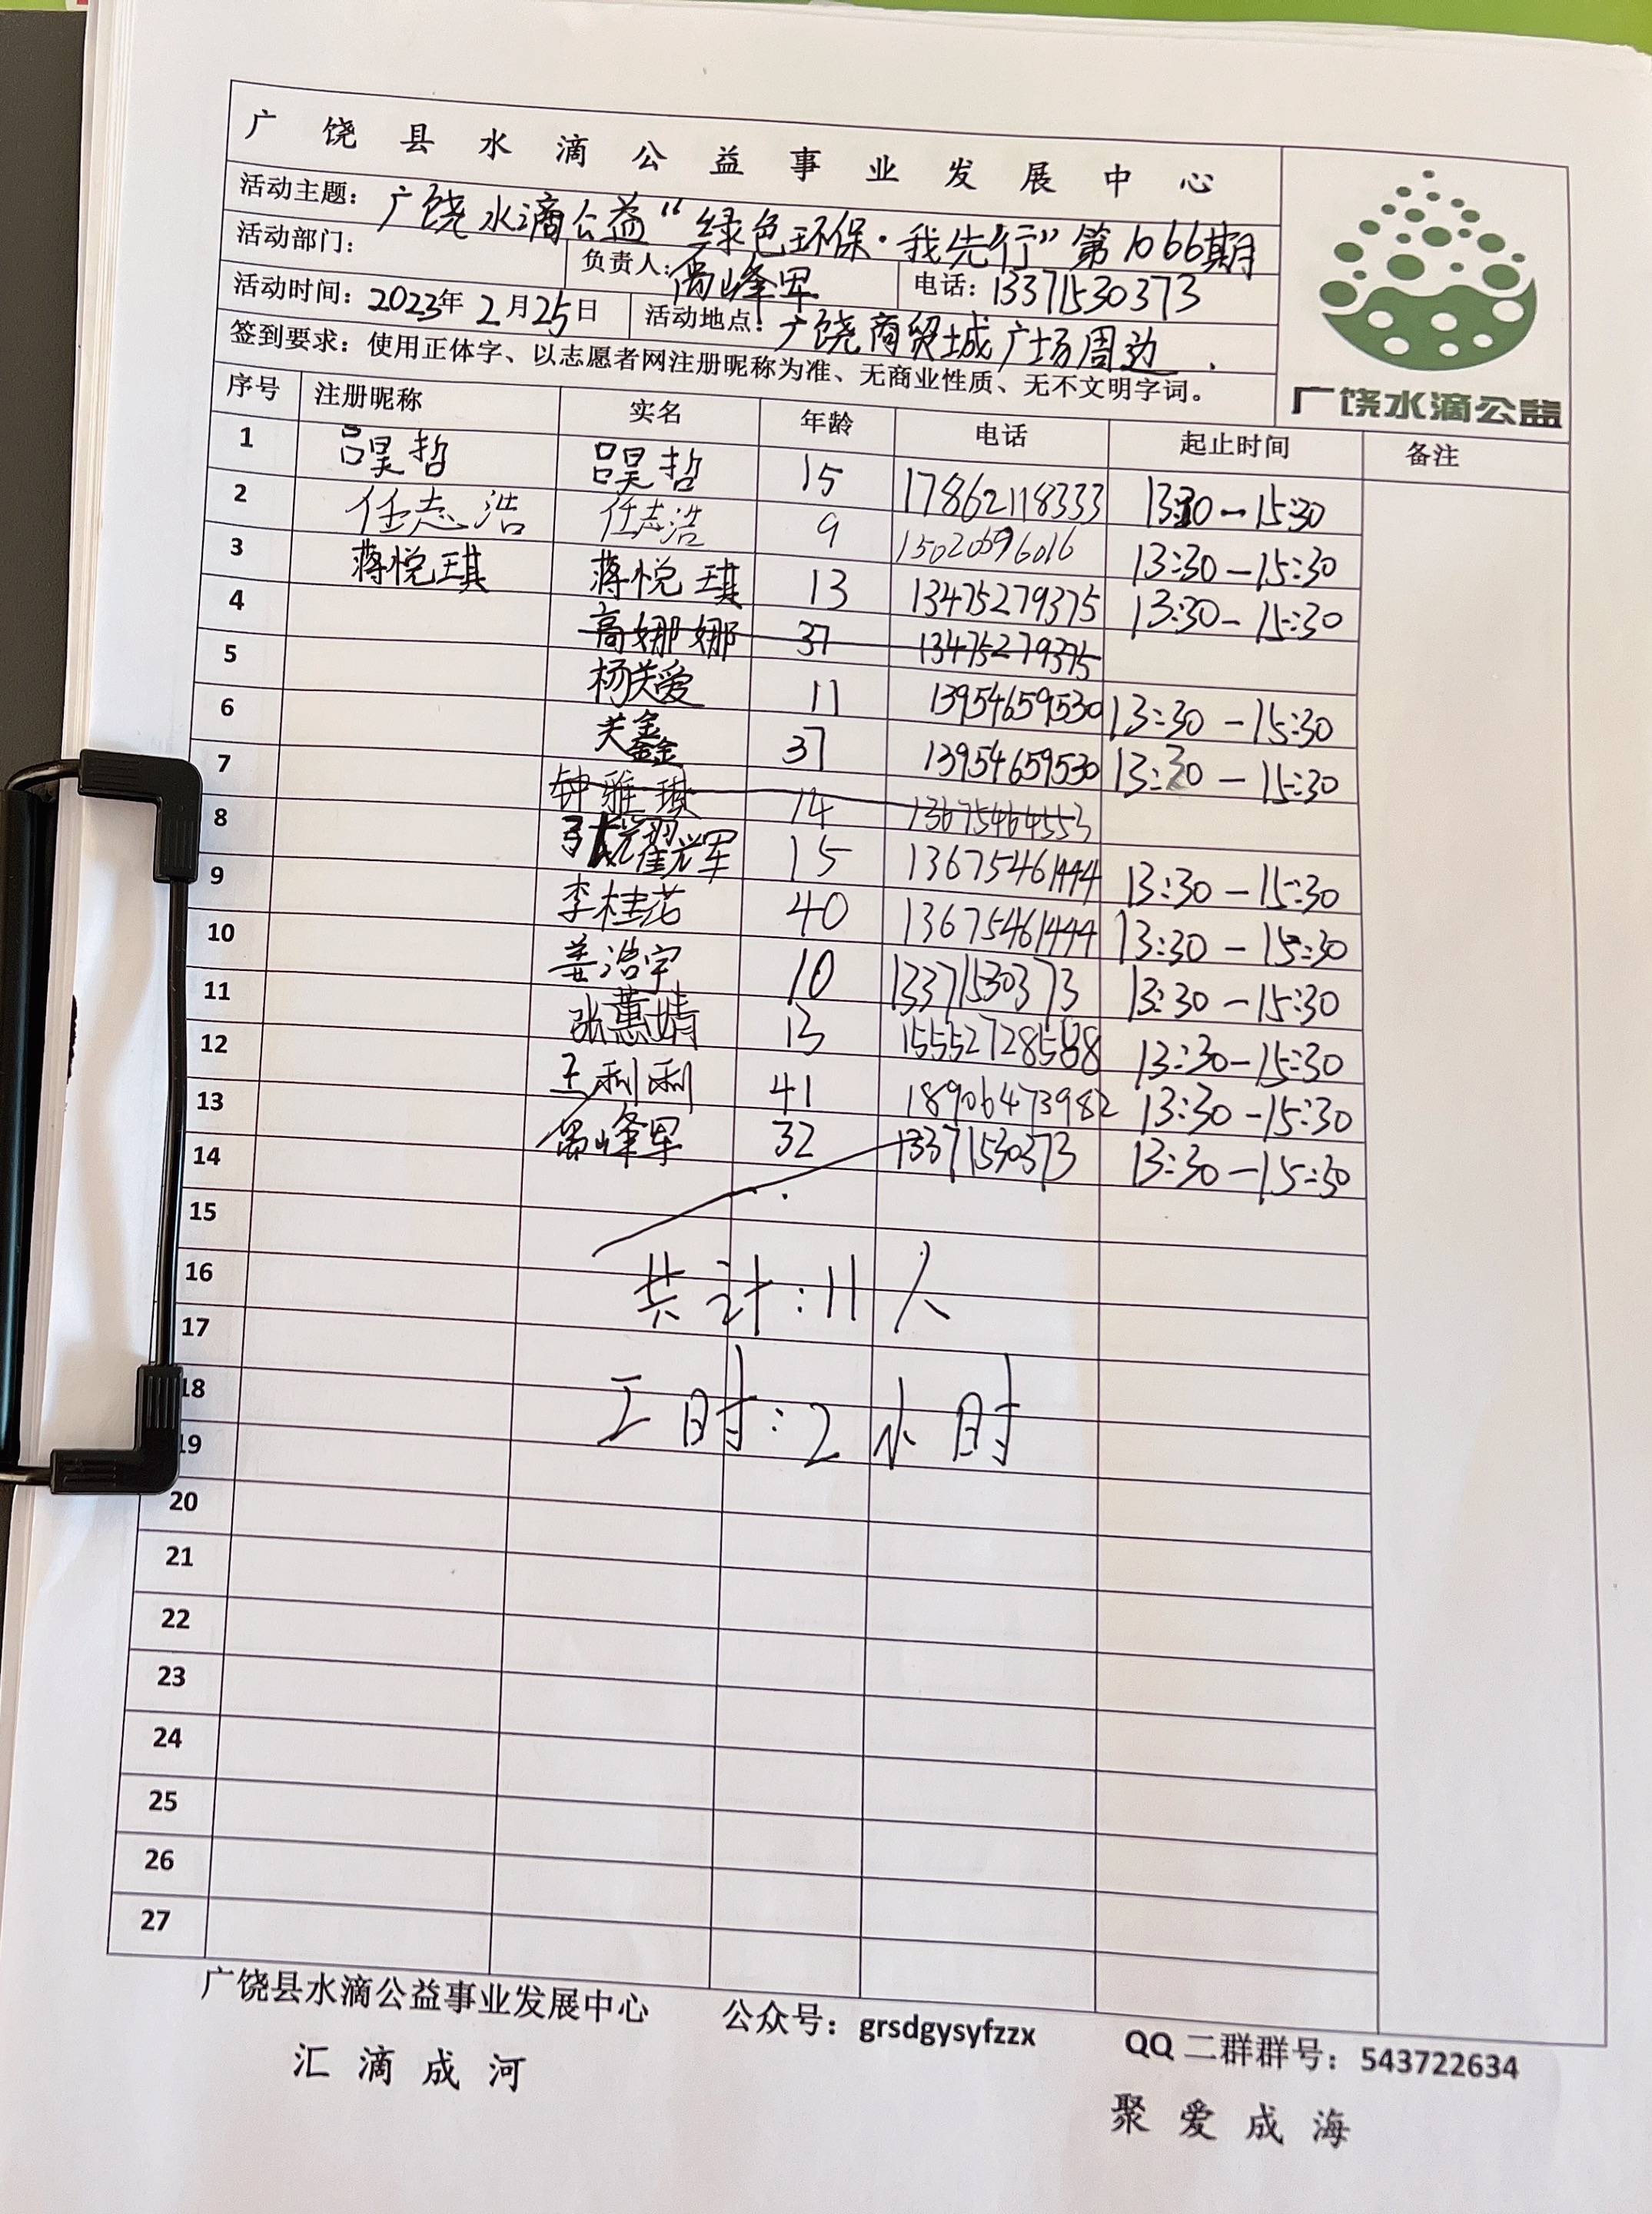 广饶县水滴公益事业发展中心
活动主题：广饶水滴公益“绿色环保·我先行”第1066期
活动部门： 负责人：禹峰军 电话：13371530373
活动时间：2023年2月25日 活动地点：广饶商贸城广场周边
签到要求：使用正体字、以志愿者网注册昵称为准、无商业性质、无不文明字词。
广饶水滴公益
序号 注册昵称 实名 年龄 电话 起止时间 备注
1 吕昊哲 吕昊哲 15 17862118333 13:30-15:30
2 任志浩 任志浩 9 15020696016 13:30-15:30
3 蒋悦琪 蒋悦琪 13 13475279375 13:30-15:30
4 高娜娜 37 13475279375
5 杨关爱 11 13954659530 13:30-15:30
6 关鑫 37 13954659530 13:30-15:30
7 钟雅琪 14 13675464553
8 耀军 15 13675461444 13:30-15:30
9 李桂花 40 13675461444 13:30-15:30
10 姜浩宇 10 13371530373 13:30-15:30
11 张蕙婧 13 15552728588 13:30-15:30
12 王利利 41 18906473982 13:30-15:30
13 禹峰军 32 13371530373 13:30-15:30
14
15
16 共计：11人
17
18 工时：2小时
19
20
21
22
23
24
25
26
27
广饶县水滴公益事业发展中心 公众号：grsdgysyfzzx QQ二群群号：543722634
汇滴成河 聚爱成海